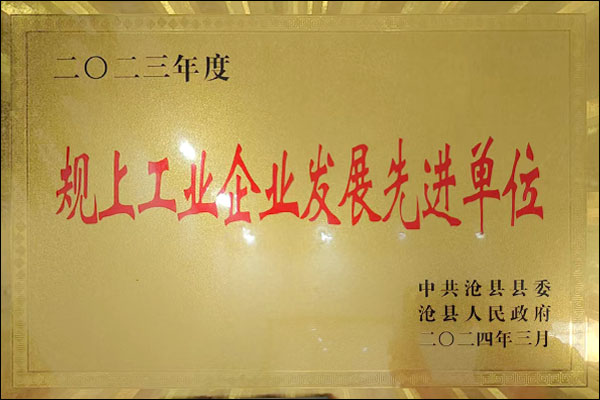 二〇二三年度
规上工业企业发展先进单位
中共沧县县委
沧县人民政府
二〇二四年三月